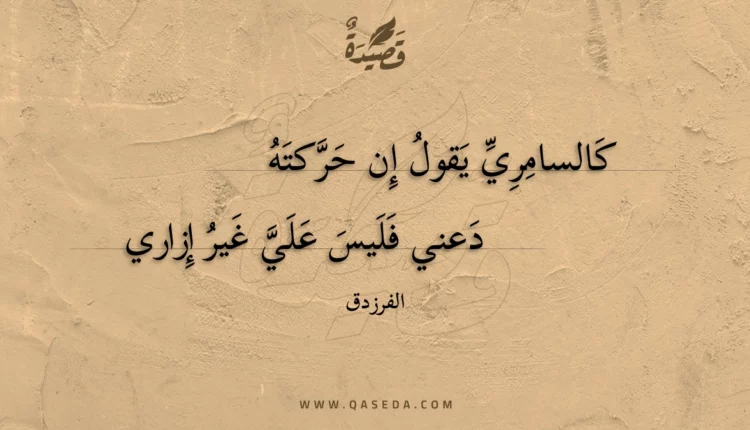 قَصِيدَةٌ
كَالسامِرِيِّ يَقولُ إِن حَرَّكتَهُ
دَعني فَلَيسَ عَلَيَّ غَيرُ إِزاري
الفرزدق
WWW.QASEDA.COM